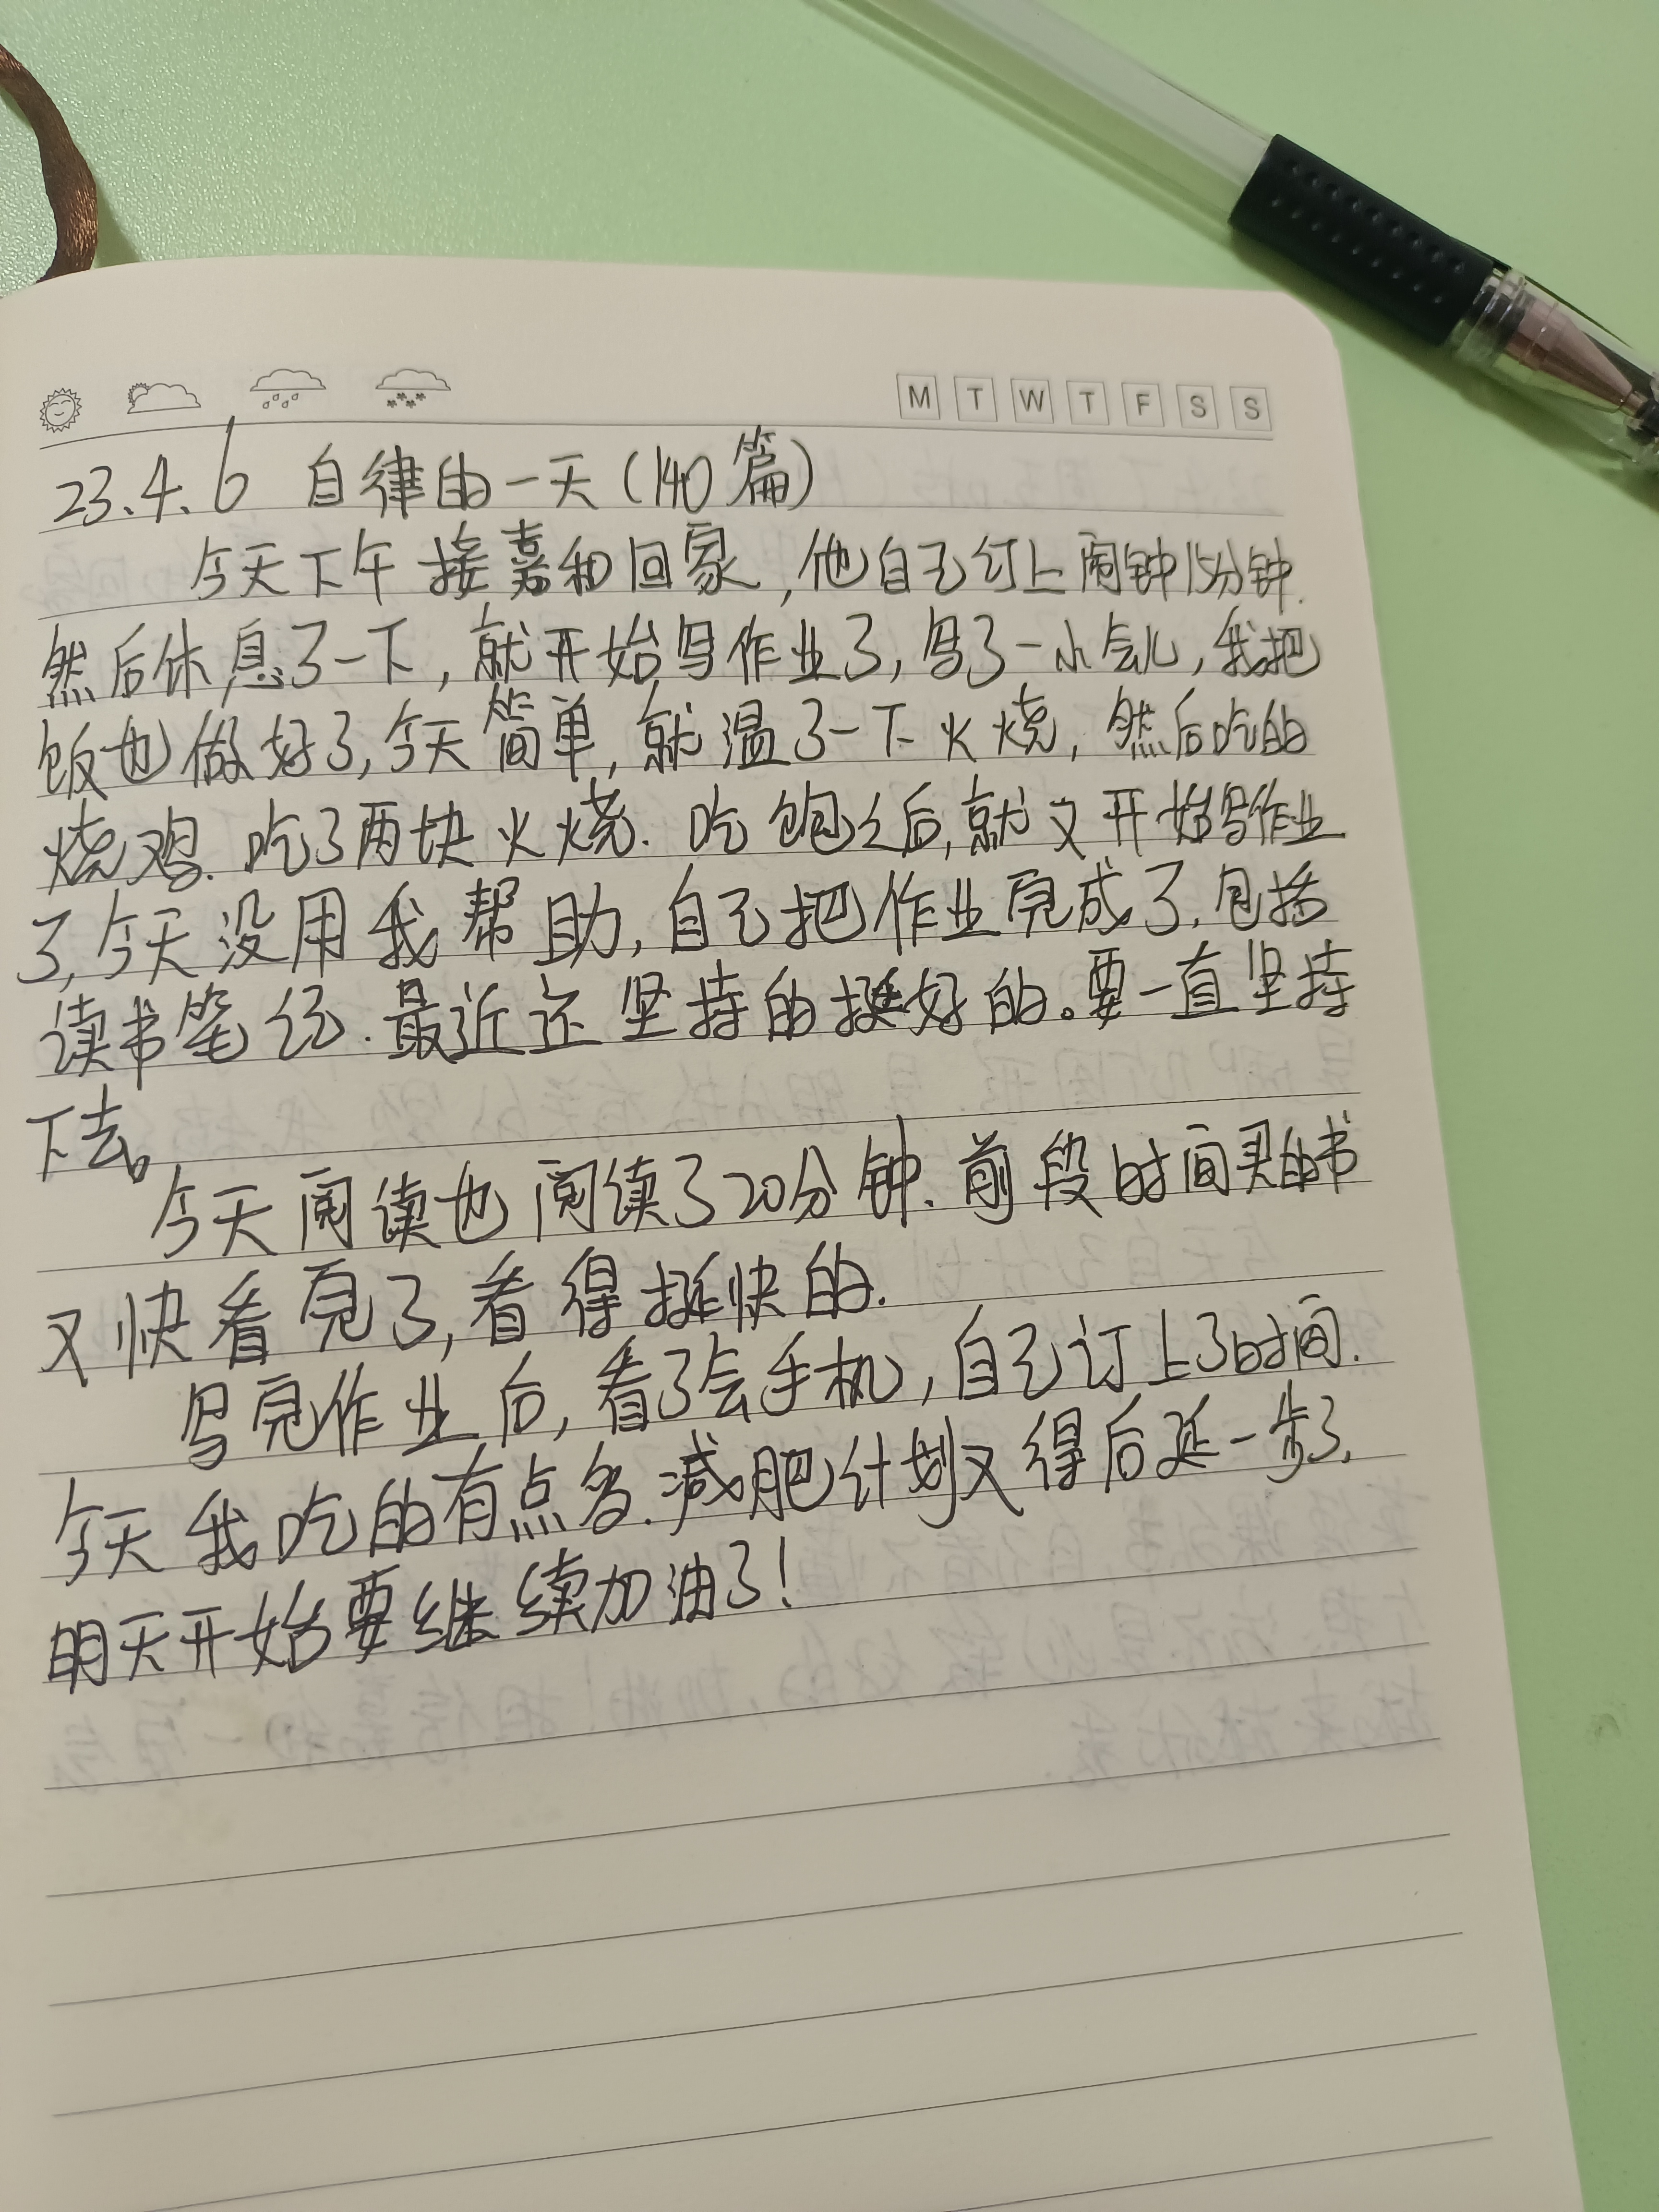 M T W T F S S
23.4.6 自律的一天(140篇)
今天下午接嘉和回家,他自己订上闹钟15分钟.
然后休息了一下,就开始写作业了,写了一小会儿,我把
饭也做好了,今天简单,就温了一下火烧,然后吃的
烧鸡.吃了两块火烧.吃饱之后,就又开始写作业
了,今天没用我帮助,自己把作业完成了,包括
读书笔记.最近还坚持的挺好的。要一直坚持
下去。
今天阅读也阅读了20分钟.前段时间买的书
又快看完了,看得挺快的.
写完作业后,看了会手机,自己订上了时间.
今天我吃的有点多.减肥计划又得后延一步了,
明天开始要继续加油了!